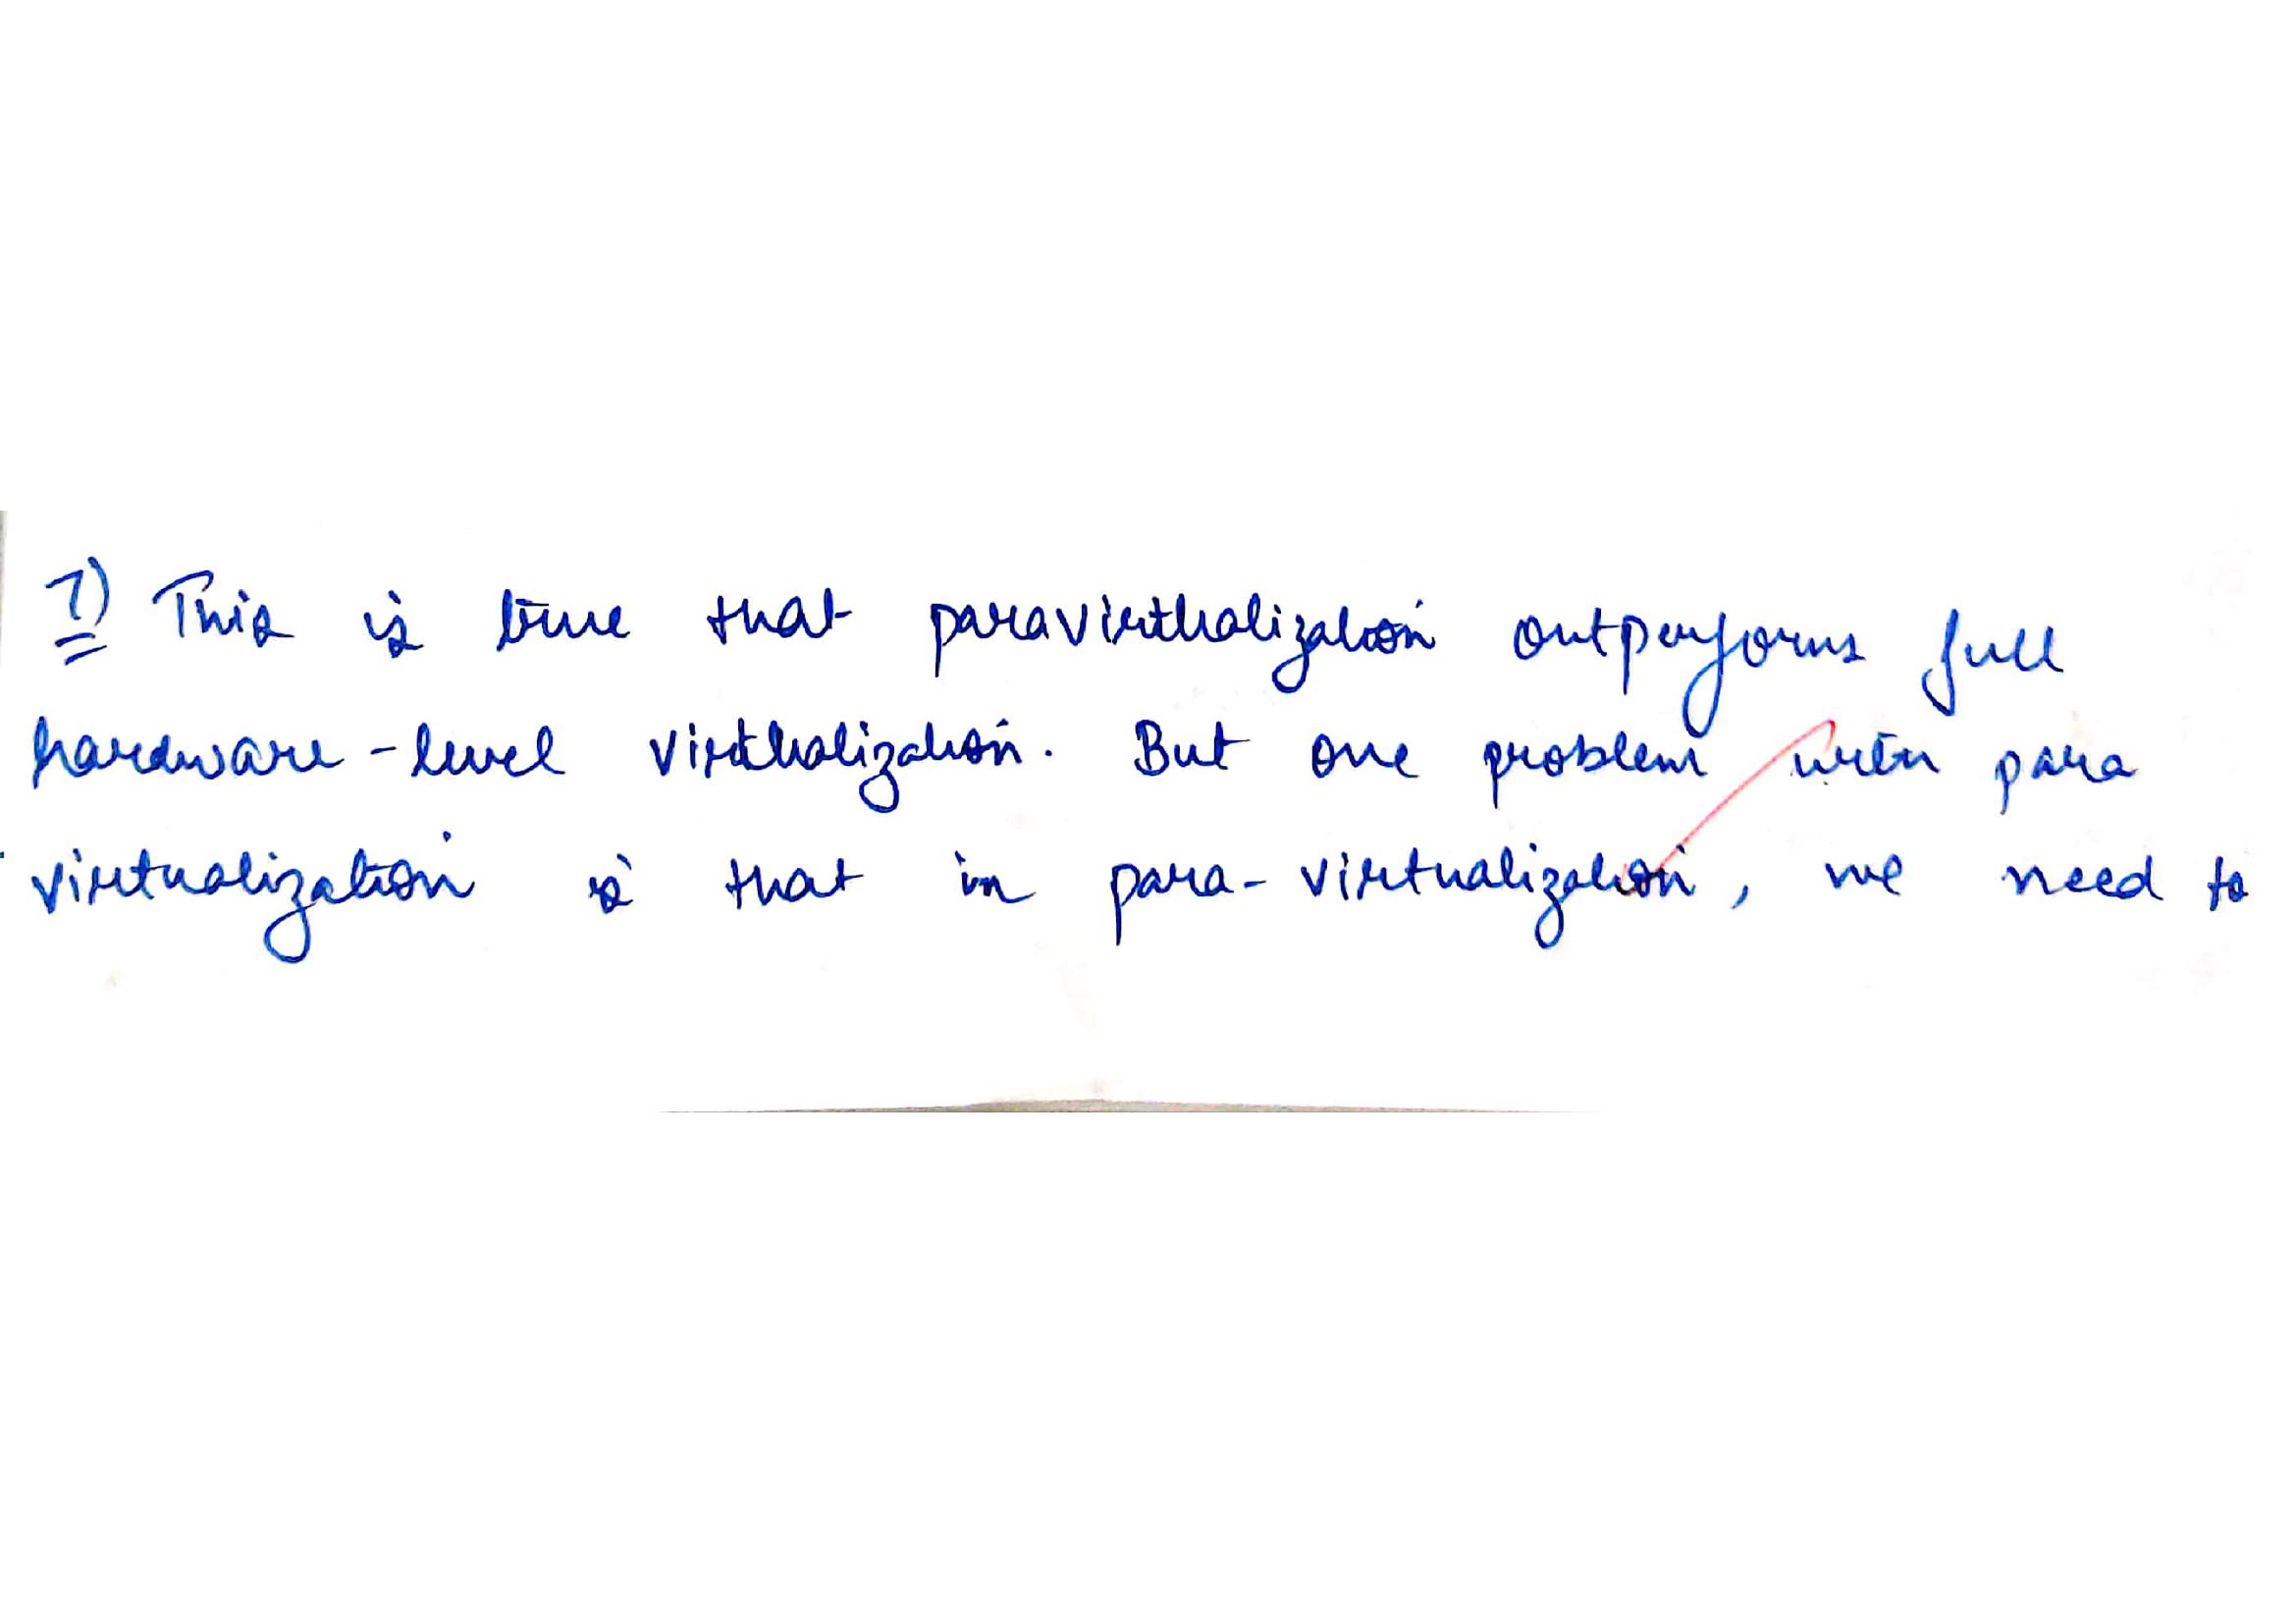 7) This is true that paravirtualization outperforms full
hardware-level virtualization. But one problem with para
virtualization is that in para-virtualization, we need to